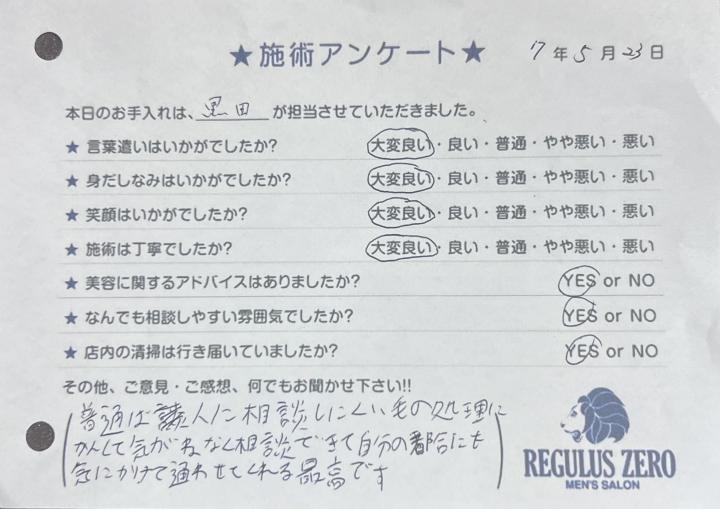 ★施術アンケート★
17年5月23日
本日のお手入れは、黒田が担当させていただきました。
★ 言葉遣いはいかがでしたか? 大変良い・良い・普通・やや悪い・悪い
★ 身だしなみはいかがでしたか? 大変良い・良い・普通・やや悪い・悪い
★ 笑顔はいかがでしたか? 大変良い・良い・普通・やや悪い・悪い
★ 施術は丁寧でしたか? 大変良い・良い・普通・やや悪い・悪い
★ 美容に関するアドバイスはありましたか? YES or NO
★ なんでも相談しやすい雰囲気でしたか? YES or NO
★ 店内の清掃は行き届いていましたか? YES or NO
その他、ご意見・ご感想、何でもお聞かせ下さい!!
普通は人に相談しにくい毛の処理に
かんして気がねなく相談できて自分の都合にも
気にかけて通わせてくれる最高です
REGULUS ZERO
MEN'S SALON